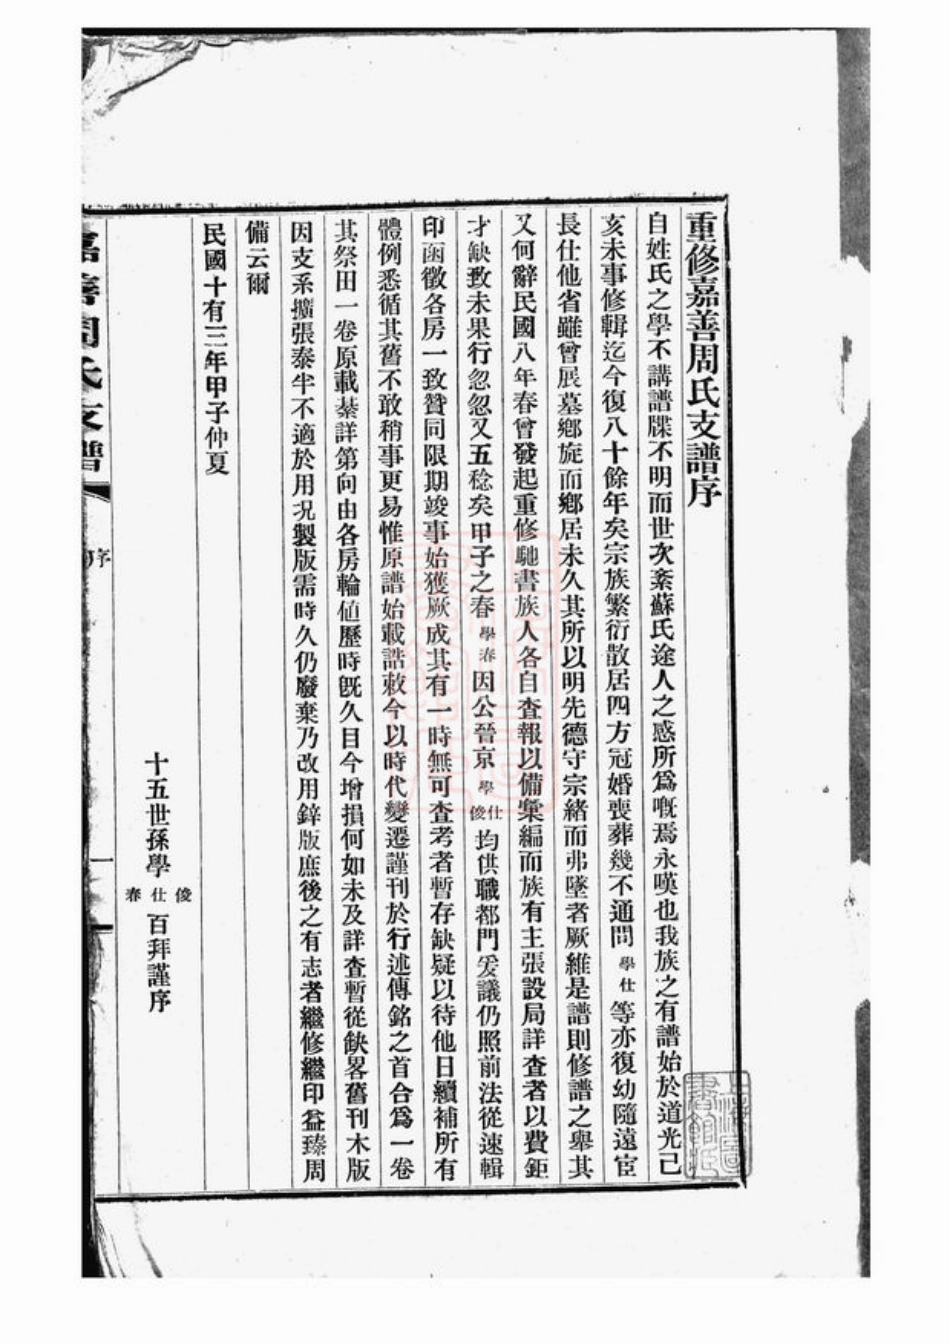 重修嘉善周氏支譜序
自姓氏之學不講譜牒不明而世次紊蘇氏途人之惑所爲嘅焉永嘆也我族之有譜始於道光己
亥未事修輯迄今復八十餘年矣宗族繁衍散居四方冠婚喪葬幾不通問學仕等亦復幼隨遠宦
長仕他省雖曾展墓鄉旋而鄉居未久其所以明先德守宗緒而弗墜者厥維是譜則修譜之舉其
又何辭民國八年春曾發起重修馳書族人各自査報以備彙編而族有主張設局詳査者以費鉅
才缺致未果行忽忽又五稔矣甲子之春學春因公晉京學仕俊均供職都門爰議仍照前法從速輯
印函徵各房一致贊同限期竣事始獲厥成其有一時無可査考者暫存缺疑以待他日續補所有
體例悉循其舊不敢稍事更易惟原譜始載誥敕今以時代變遷謹刊於行述傳銘之首合爲一卷
其祭田一卷原載綦詳第向由各房輪値歷時既久目今增損何如未及詳査暫從缺畧舊刊木版
因支系擴張泰半不適於用况製版需時久仍廢棄乃改用鋅版庶後之有志者繼修繼印益臻周
備云爾
民國十有三年甲子仲夏
十五世孫學俊仕春百拜謹序
嘉善周氏支譜
序
一